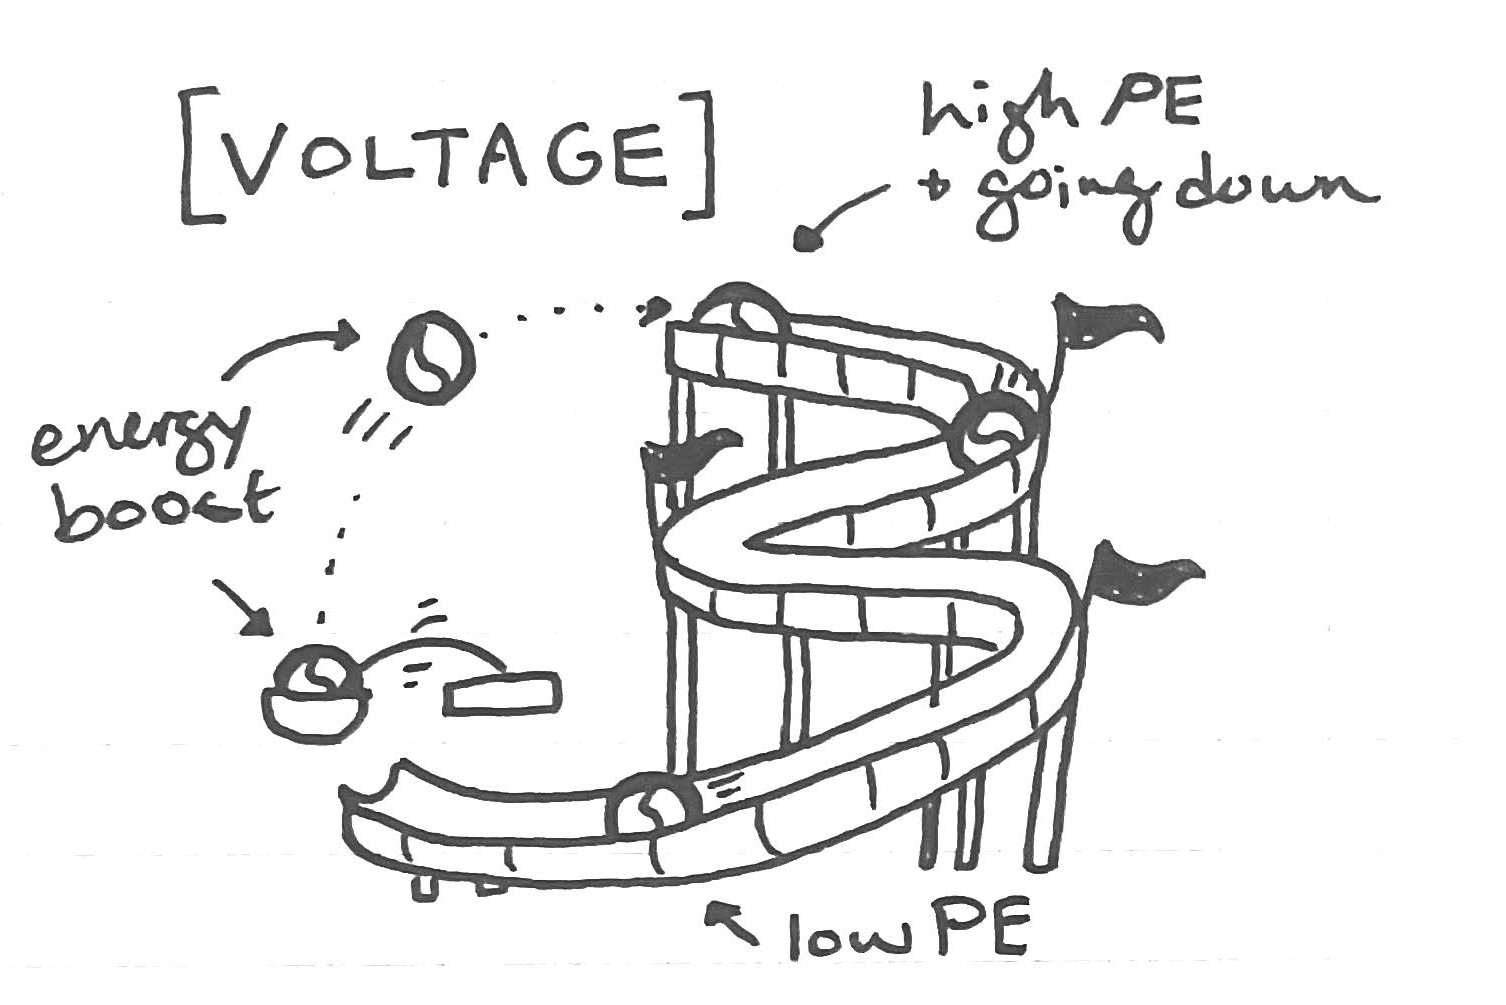 [VOLTAGE]
high PE
+ going down
energy
boost
low PE